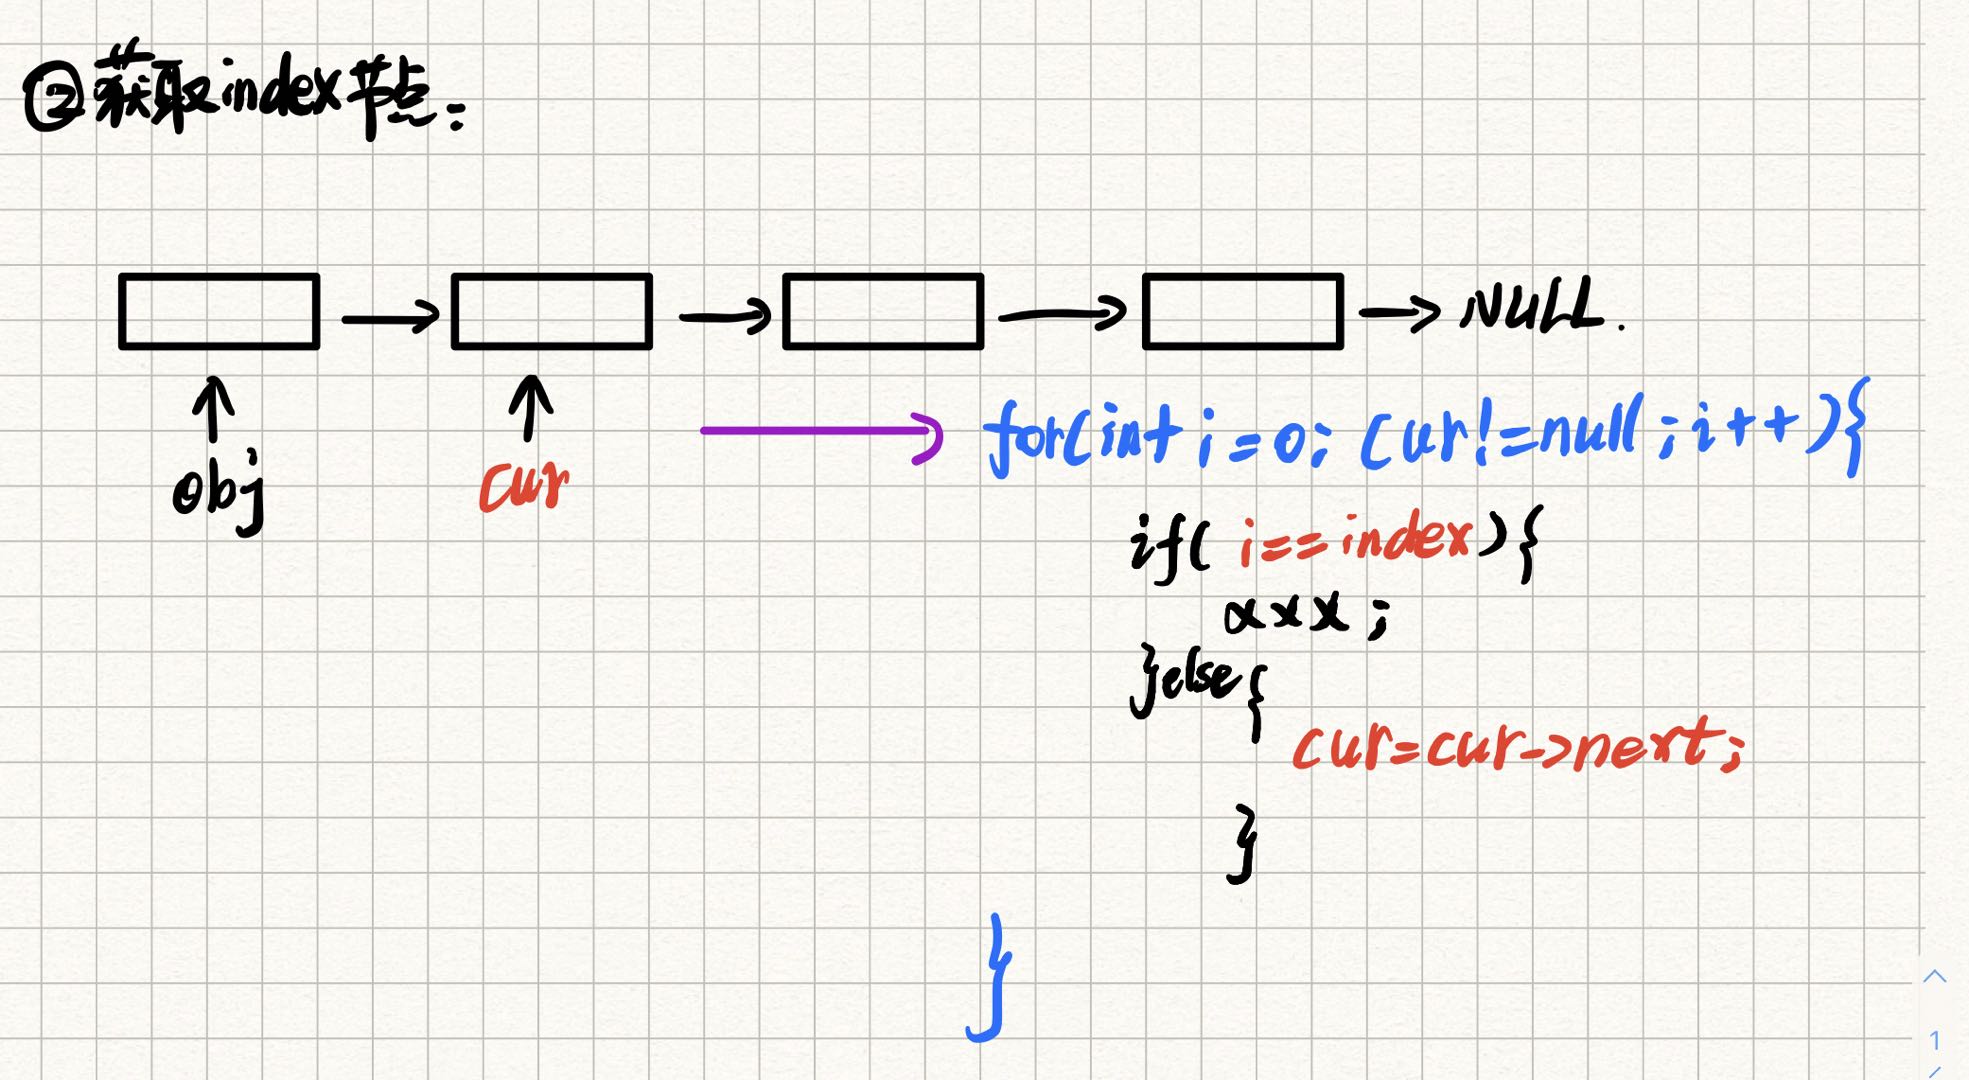 ②获取index节点:
NULL.
obj
cur
for(int i=0; cur!=null; i++){
if( i==index){
xxx;
}else{
cur=cur->next;
}
}
1